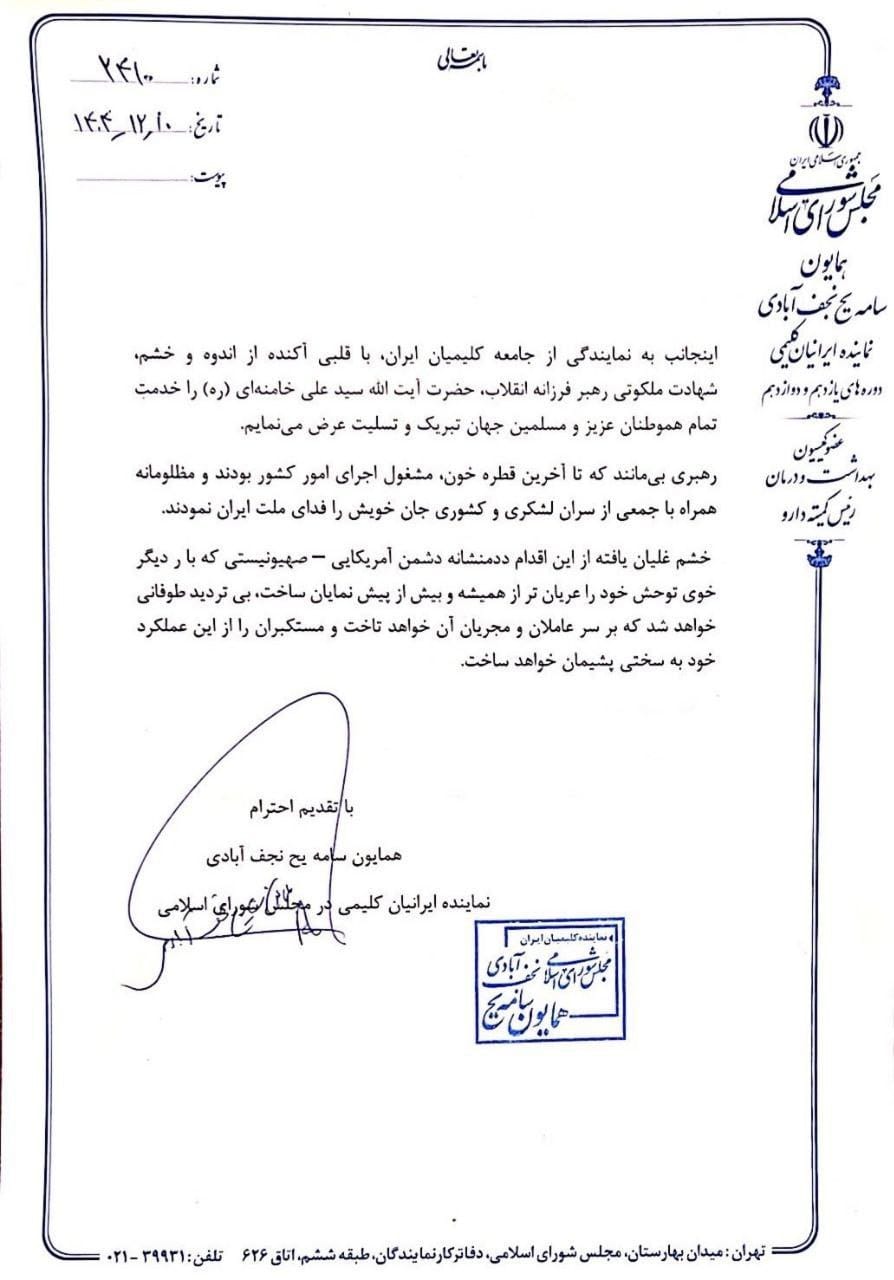 باسمه تعالی
شماره: ۲۴۱۰۰
تاریخ: ۱۴۰۴٫۱۲٫۱۰
پیوست:
جمهوری اسلامی ایران
مجلس شورای اسلامی
همایون
سامه یح نجف آبادی
نماینده ایرانیان کلیمی
دوره های یازدهم و دوازدهم
عضو کمیسیون
بهداشت و درمان
رئیس کمیته دارو
اینجانب به نمایندگی از جامعه کلیمیان ایران، با قلبی آکنده از اندوه و خشم،
شهادت ملکوتی رهبر فرزانه انقلاب، حضرت آیت الله سید علی خامنه‌ای (ره) را خدمتِ
تمام هموطنان عزیز و مسلمین جهان تبریک و تسلیت عرض می‌نمایم.
رهبری بی‌مانند که تا آخرین قطره خون، مشغول اجرای امور کشور بودند و مظلومانه
همراه با جمعی از سران لشکری و کشوری جان خویش را فدای ملت ایران نمودند.
خشم غلیان یافته از این اقدام ددمنشانه دشمن آمریکایی – صهیونیستی که با ر دیگر
خوی توحش خود را عریان تر از همیشه و بیش از پیش نمایان ساخت، بی تردید طوفانی
خواهد شد که بر سر عاملان و مجریان آن خواهد تاخت و مستکبران را از این عملکرد
خود به سختی پشیمان خواهد ساخت.
با تقدیم احترام
همایون سامه یح نجف آبادی
نماینده ایرانیان کلیمی در مجلس شورای اسلامی
نماینده کلیمیان ایران
مجلس شورای اسلامی
نجف آبادی
همایون سامه یح
تهران: میدان بهارستان، مجلس شورای اسلامی، دفاتر کار نمایندگان، طبقه ششم، اتاق ۶۲۶ تلفن: ۳۹۹۳۱-۰۲۱